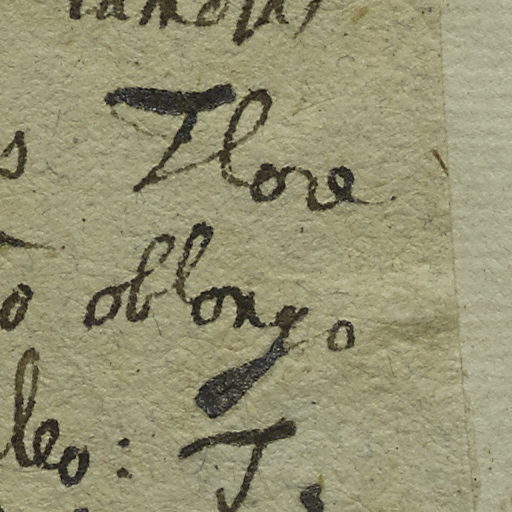 s Flore
o oblongo
leo: T